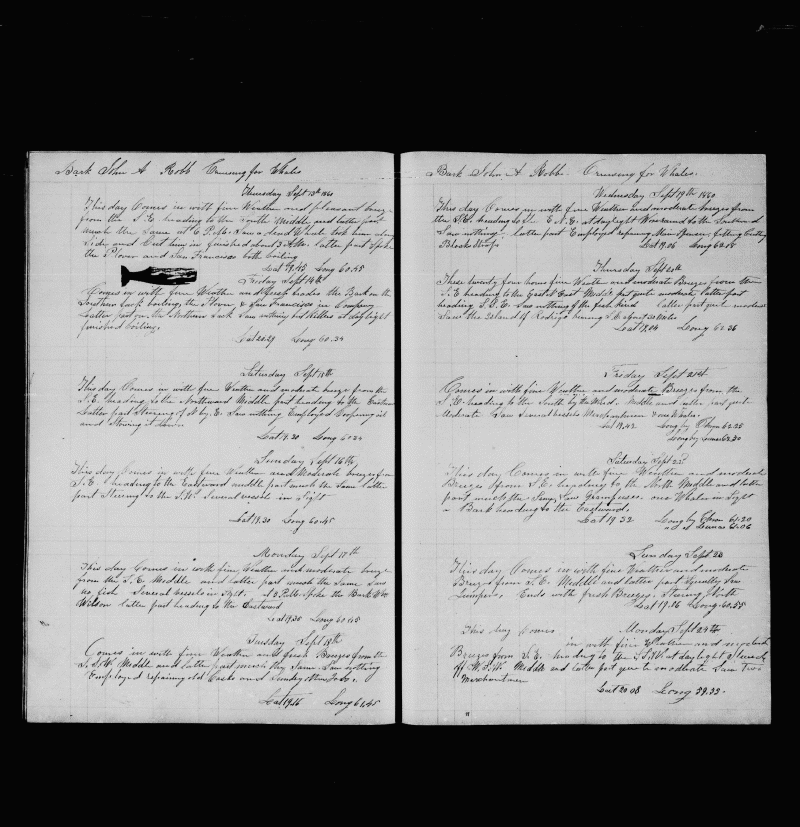 Bark John A Robb Cruising for Whales
Thursday Sept 13th 1860
This day Comes in with fine Weather and pleasant breeze
from the S.E. heading to the South Middle and latter part
much the Same at 6 P.M. Saw a dead Whale took him along
Side and Cut him in finished about 3 AM. latter part Spoke
the Plover and San Francisco both boiling
Lat 19.45 Long 60.45
Friday Sept 14th
Comes in with fine Weather and fresh trades the Bark on the
Southern Tack boiling, the Plover & San Francisco in Company
Latter part on the Northern Tack Saw nothing but Killers at daylight
finished boiling.
Lat 20.29 Long 60.34
Saturday Sept 15th
This day Comes in with fine Weather and moderate breeze from the
S.E. heading to the Northward Middle part heading to the Eastward
Latter part Steering N by E. Saw nothing Employed Coopering oil
and Stowing it down
Lat 19.20 Long 60.24
Sunday Sept 16th
This day Comes in with fine Weather and Moderate breeze from
S.E. heading to the Eastward middle part much the Same latter
part Steering to the S.W. Several vessels in Sight
Lat 19.30 Long 60.45
Monday Sept 17th
This day Comes in with fine Weather and moderate breeze
from the S.E. Middle and latter part much the Same Saw
no fish Several vessels in Sight. At 3 P.M. Spoke the Bark Wm
Wilson latter part heading to the Eastward
Lat 19.35 Long 60.45
Tuesday Sept 18th
Comes in with fine Weather and fresh Breezes from the
S.S.W. Middle and latter part much the Same. Saw nothing
Employed repairing old Casks and Sundry other Jobs.
Lat 19.16 Long 61.45
Bark John A. Robb. Cruising for Whales.
Wednesday Sept 19th 1860
This day Comes in with fine Weather and moderate breezes from
the S.E. heading to the E.N.E. at daylight Wore round to the Southward
Saw nothing. latter part Employed repairing Main Spencer, fitting Cutting
Blocks Straps
Lat 19.06 Long 60.18
Thursday Sept 20th
These twenty four hours fine Weather and moderate Breezes from the
S.E. heading to the East & East Middle part quite moderate, latter part
heading S.S.E. Saw nothing of the fish kind latter part quite moderate
Saw the Island of Rodrigo bearing S.E. distant 30 Miles
Lat 19.04 Long 62.36
Friday Sept 21st
Comes in with fine Weather and moderate Breezes from the
S.E. heading to the South by the Wind. Middle and latter part quite
Moderate Saw Several vessels Merchantmen & one Whaler.
Lat 19.42 Long by Chron 62.25
Long by Lunar 62.30
Saturday Sept 22d
This day Comes in with fine Weather and moderate
Breezes from S.E. heading to the North Middle and latter
part much the Same, Saw Grampuses. one Whaler in Sight
a Bark heading to the Eastward.
Lat 19 32 Long by Chron 61.20
Lunar 61.06
Sunday Sept 23
This day Comes in with fine Weather and moderate
Breezes from S.E. Middle and latter part Squally Saw
Jumpers, Ends with fresh Breezes. Steering North
Lat 19.16 Long 60.55
This day Comes Monday Sept 24th
in with fine Weather and moderate
Breezes from S.E. heading to the S.S.W. at daylight
off W.S.W. Middle and latter part quite moderate Saw Two
Merchantmen
Lat 20.08 Long 59.33.